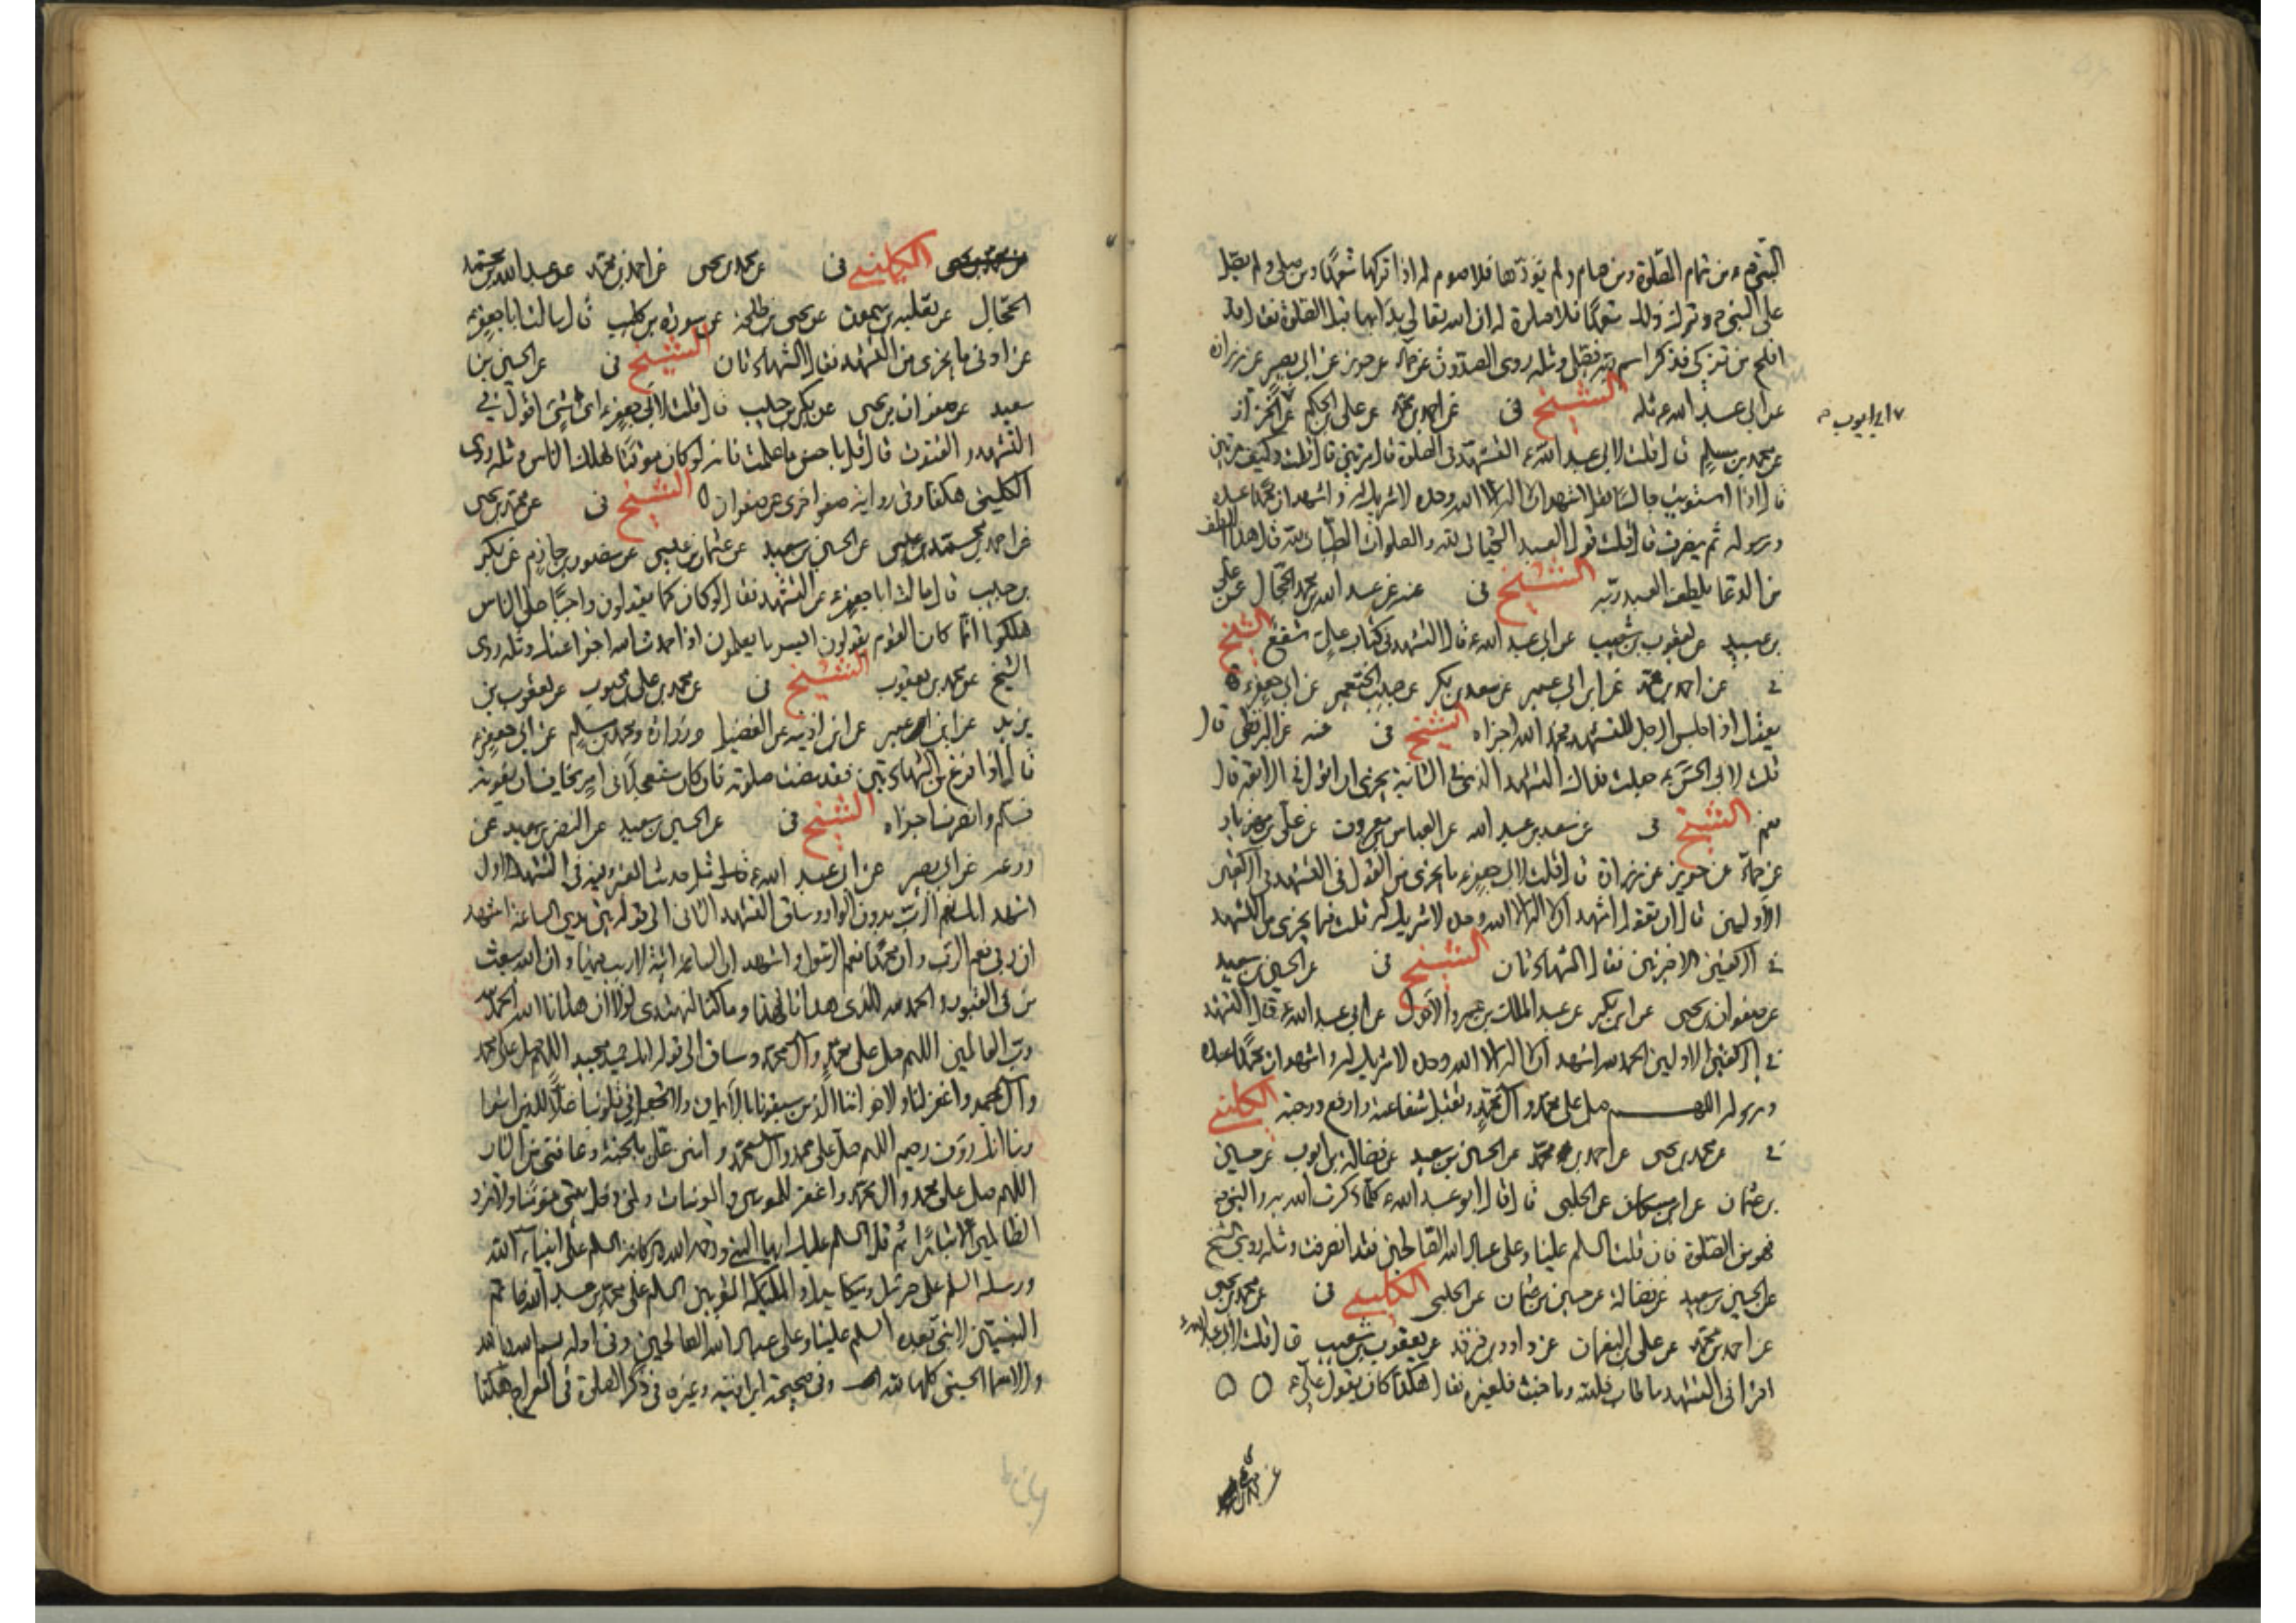 النبي ص من تمام الصلوة ومن صام ولم يؤدها فلا صوم له اذا تركها متعمدا ومن صلى ولم يصل
على النبي ص وترك ذلك متعمدا فلا صلوة له ان الله تعالى بدا بها قبل الصلوة فقال قد
افلح من تزكى وذكر اسم ربه فصلى ومثله روى الصدوق عن حماد عن حريز عن ابي بصير عن زرارة
عن ابي عبد الله ع مثله الشيخ في عن احمد بن محمد عن علي بن الحكم عن الخزاز
ابي ايوب
عن محمد بن مسلم قال قلت لابي عبد الله ع التشهد في الصلوة قال مرتين قال قلت وكيف مرتين
قال اذا استويت جالسا فقل اشهد ان لا اله الا الله وحده لا شريك له واشهد ان محمدا عبده
ورسوله ثم ينصرف قال قلت قول العبد التحيات لله والصلوات الطيبات لله قال هذا اللطف
من الدعا يلطف العبد ربه الشيخ في عنه عن عبد الله بن محمد الحجال عن علي
بن عبيد عن يعقوب بن شعيب عن ابي عبد الله ع قال التشهد في كتاب علي شفع الشيخ
في عن احمد بن محمد عن ابن ابي عمير عن سعد بن بكر عن حبيب الخثعمي عن ابي جعفر ع
يقول اذا جلس الرجل للتشهد فحمد الله اجزاه الشيخ في عنه عن البزنطي قال
قلت لابي الحسن ع جعلت فداك التشهد الذي في الثانية يجزي ان اقول في الرابعة قال
نعم الشيخ في عن سعد بن عبد الله عن العباس بن معروف عن علي بن مهزيار
عن حماد عن حريز عن زرارة قال قلت لابي جعفر ع ما يجزي من القول في التشهد في الركعتين
الاولتين قال ان تقول اشهد ان لا اله الا الله وحده لا شريك له قلت فما يجزي من التشهد
في الركعتين الاخيرتين فقال الشهادتان الشيخ في عن الحسين بن سعيد
عن صفوان بن يحيى عن ابن بكير عن عبد الملك بن عمرو الاحول عن ابي عبد الله ع قال التشهد
في الركعتين الاوليين الحمد لله اشهد ان لا اله الا الله وحده لا شريك له واشهد ان محمدا عبده
ورسوله اللهم صل على محمد وال محمد وتقبل شفاعته وارفع درجته الكليني
في عن محمد بن يحيى عن احمد بن محمد عن الحسين بن سعيد عن فضالة بن ايوب عن حسين
بن عثمان عن ابن مسكان عن الحلبي قال قال ابو عبد الله ع كلما ذكرت الله به والنبي ص
فهو من الصلوة فان قلت السلم علينا وعلى عباد الله الصالحين فقد انصرفت ومثله روى الشيخ
عن الحسين بن سعيد عن فضالة عن حسين بن عثمان عن الحلبي الكليني في عن محمد بن يحيى
عن احمد بن محمد عن علي بن النعمان عن داود بن فرقد عن يعقوب بن شعيب قال قلت لابي عبد الله ع
اقرا في التشهد ما طاب فلله وما خبث فلغيره فقال هكذا كان يقول علي ع
الكليني في عن محمد بن يحيى عن احمد بن محمد عن عبد الله بن محمد
الحجال عن ثعلبة بن ميمون عن يحيى بن طلحة عن سورة بن كليب قال سالت ابا جعفر ع
عن ادنى ما يجزي من التشهد فقال الشهادتان الشيخ في عن الحسين بن
سعيد عن صفوان بن يحيى عن بكر بن حبيب قال قلت لابي جعفر ع اي شيء اقول في
التشهد والقنوت قال قل باحسن ما علمت فانه لو كان موقتا لهلك الناس ومثله روى
الكليني هكذا وفي رواية صفوا اخرى عن صفوان الشيخ في عن محمد بن يحيى
عن احمد بن محمد بن عيسى عن الحسين بن سعيد عن عثمان بن عيسى عن منصور بن حازم عن بكر
بن حبيب قال سالت ابا جعفر ع عن التشهد فقال لو كان كما يقولون واجبا على الناس
هلكوا انما كان القوم يقولون ايسر ما يعلمون اذا حمدت الله اجزا عنك ومثله روى
الشيخ عن محمد بن يعقوب الشيخ في عن محمد بن علي بن محبوب عن يعقوب بن
يزيد عن ابن ابي عمير عن ابن اذينة عن الفضيل وزرارة ومحمد بن مسلم عن ابي جعفر ع
قال اذا فرغ من الشهادتين فقد مضت صلوته فان كان مستعجلا في امر يخاف ان يفوته
فسلم وانصرف اجزاه الشيخ في عن الحسين بن سعيد عن النضر بن سويد عن
زرعة عن ابي بصير عن ابي عبد الله ع مثل حديث في التشهد الاول
اشهد انك نعم الرب بدون الواو وساق التشهد الثاني الى قوله بين يدي الساعة اشهد
ان ربي نعم الرب وان محمدا نعم الرسول واشهد ان الساعة اتية لا ريب فيها وان الله يبعث
من في القبور والحمد لله الذي هدانا لهذا وما كنا لنهتدي لولا ان هدانا الله الحمد لله
رب العالمين اللهم صل على محمد وال محمد وساق الى قوله انك حميد مجيد اللهم صل على محمد
وال محمد واغفر لنا ولاخواننا الذين سبقونا بالايمان ولا تجعل في قلوبنا غلا للذين امنوا
ربنا انك رؤف رحيم اللهم صل على محمد وال محمد وامنن علي بالجنة وعافني من النار
اللهم صل على محمد وال محمد واغفر للمومنين والمومنات ولمن دخل بيتي مومنا ولا تزد
الظالمين الا تبارا ثم قل السلم عليك ايها النبي ورحمة الله وبركاته السلم على انبياء الله
ورسله السلم على جبرئيل وميكائيل والمليكة المقربين السلم على محمد بن عبد الله خاتم
النبيين لا نبي بعده السلم علينا وعلى عباد الله الصالحين وفي اوله بسم الله وبالله
والاسما الحسنى كلها لله وفي صحيحة ابن اذينة وغيره في ذكر الصلوة في المعراج هكذا